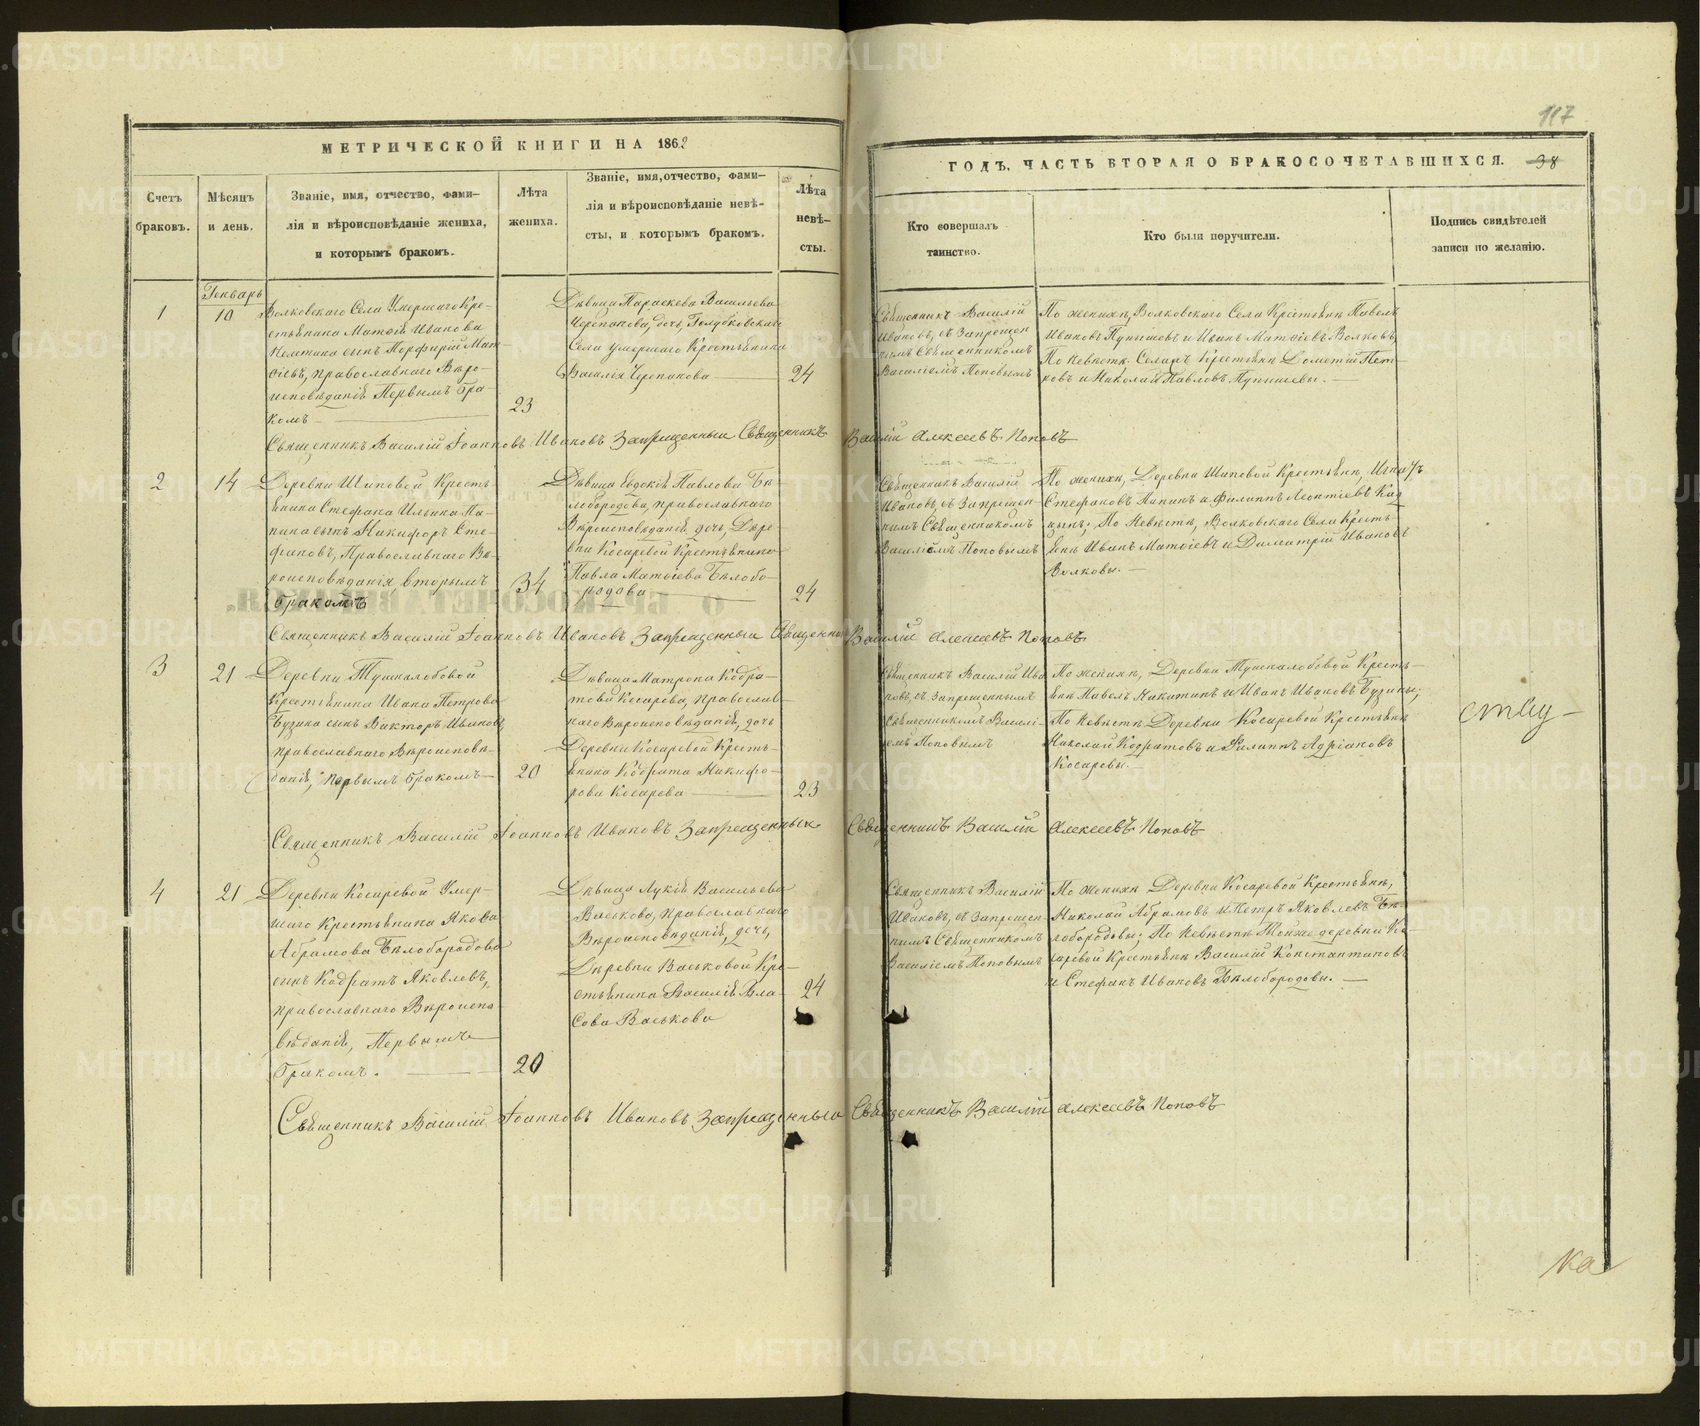 117
МЕТРИЧЕСКОЙ КНИГИ НА 1862
ГОДЪ, ЧАСТЬ ВТОРАЯ О БРАКОСОЧЕТАВШИХСЯ. 38
Счетъ
браковъ.
Мѣсяцъ
и день.
Званіе, имя, отчество, фами-
лія и вѣроисповѣданіе жениха,
и которымъ бракомъ.
Лѣта
жениха.
Званіе, имя, отчество, фами-
лія и вѣроисповѣданіе невѣ-
сты, и которымъ бракомъ.
Лѣта
невѣ-
сты.
Кто совершалъ
таинство.
Кто были поручители.
Подпись свидѣтелей
записи по желанію.
1
Генварь
10
Волковскаго Села Умершаго Кре-
стьянина Матѳія Иванова
сынъ Порфирій Мат-
ѳіевъ, православнаго Вѣро-
исповѣданія Первымъ бра-
комъ
23
Дѣвица Параскева Васильева
Черепанова, дочь, Голубковскаго
Села умершаго Крестьянина
Василія Черепанова
24
Священникъ Василій
Ивановъ, съ Запрещен
нымъ Священникомъ
Василіемъ Поповымъ
По женихѣ, Волковскаго Села Крестьяне Павелъ
Ивановъ и Иванъ Матѳіевъ Волковъ,
По невѣстѣ Крестьяне Дометій Пет-
ровъ и Николай Павловъ
Священникъ Василій Іоанновъ Ивановъ Запрещенный Священникъ Василій Алексеевъ Поповъ
2
14
Деревни Шиповой Кресть
янина Стефана Ильина Па-
нина сынъ Никифоръ Сте-
фановъ, Православнаго Вѣ-
роисповѣданія вторымъ
бракомъ
34
Дѣвица Евдокія Павлова Бѣ-
лобородова, православнаго
Вѣроисповѣданія дочь, Дере-
вни Косаревой Крестьянина
Павла Матѳіева Бѣлобо-
родова
24
Священникъ Василій
Ивановъ, съ Запрещен-
нымъ Священникомъ
Василіемъ Поповымъ
По женихѣ, Деревни Шиповой Крестьяне, Игнатъ
Стефановъ Панинъ и Филиппъ Леонтіевъ
По Невѣстѣ, Волковскаго Села Кресть
яне Иванъ Матѳіевъ и Димитрій Ивановъ
Волковы.
Священникъ Василій Іоанновъ Ивановъ Запрещенный Священникъ Василій Алексеевъ Поповъ
3
21
Деревни Тушкалобовой
Крестьянина Ивана Петрова
Бузина сынъ Викторъ Ивановъ,
православнаго Вѣроисповѣ-
данія, Первымъ бракомъ
20
Дѣвица Матрона Кодра-
това Косарева, православ-
наго Вѣроисповѣданія, дочь
Деревни Косаревой Кресть-
янина Кодрата Никифо-
рова Косарева
23
Священникъ Василій Ива
новъ, съ Запрещеннымъ
Священникомъ Василі-
емъ Поповымъ
По женихѣ, Деревни Тушкалобовой Кресть-
яне Павелъ Никитинъ и Иванъ Ивановъ Бузины;
По невѣстѣ Деревни Косаревой Крестьяне
Николай Кодратовъ и Филиппъ Адріановъ
Косаревы.
Священникъ Василій Іоанновъ Ивановъ Запрещенный Священникъ Василій Алексеевъ Поповъ
4
21
Деревни Косаревой Умер-
шаго Крестьянина Якова
Абрамова Бѣлобородова
сынъ Кодратъ Яковлевъ,
православнаго Вѣроиспо-
вѣданія, Первымъ
бракомъ.
20
Дѣвица Лукія Васильева
Васькова, православнаго
Вѣроисповѣданія, дочь,
Деревни Васьковой Кре-
стьянина Василія Вла-
сова Васькова
24
Священникъ Василій
Ивановъ, съ Запрещен-
нымъ Священникомъ
Василіемъ Поповымъ
По женихѣ Деревни Косаревой Крестьяне,
Николай Абрамовъ и Петръ Яковлевъ Бѣ-
лобородовы; По Невѣстѣ Тойже деревни Ко-
саревой Крестьяне Василій Константиновъ
и Стефанъ Ивановъ Бѣлобородовы.
Священникъ Василій Іоанновъ Ивановъ Запрещенный Священникъ Василій Алексеевъ Поповъ
METRIKI.GASO-URAL.RU